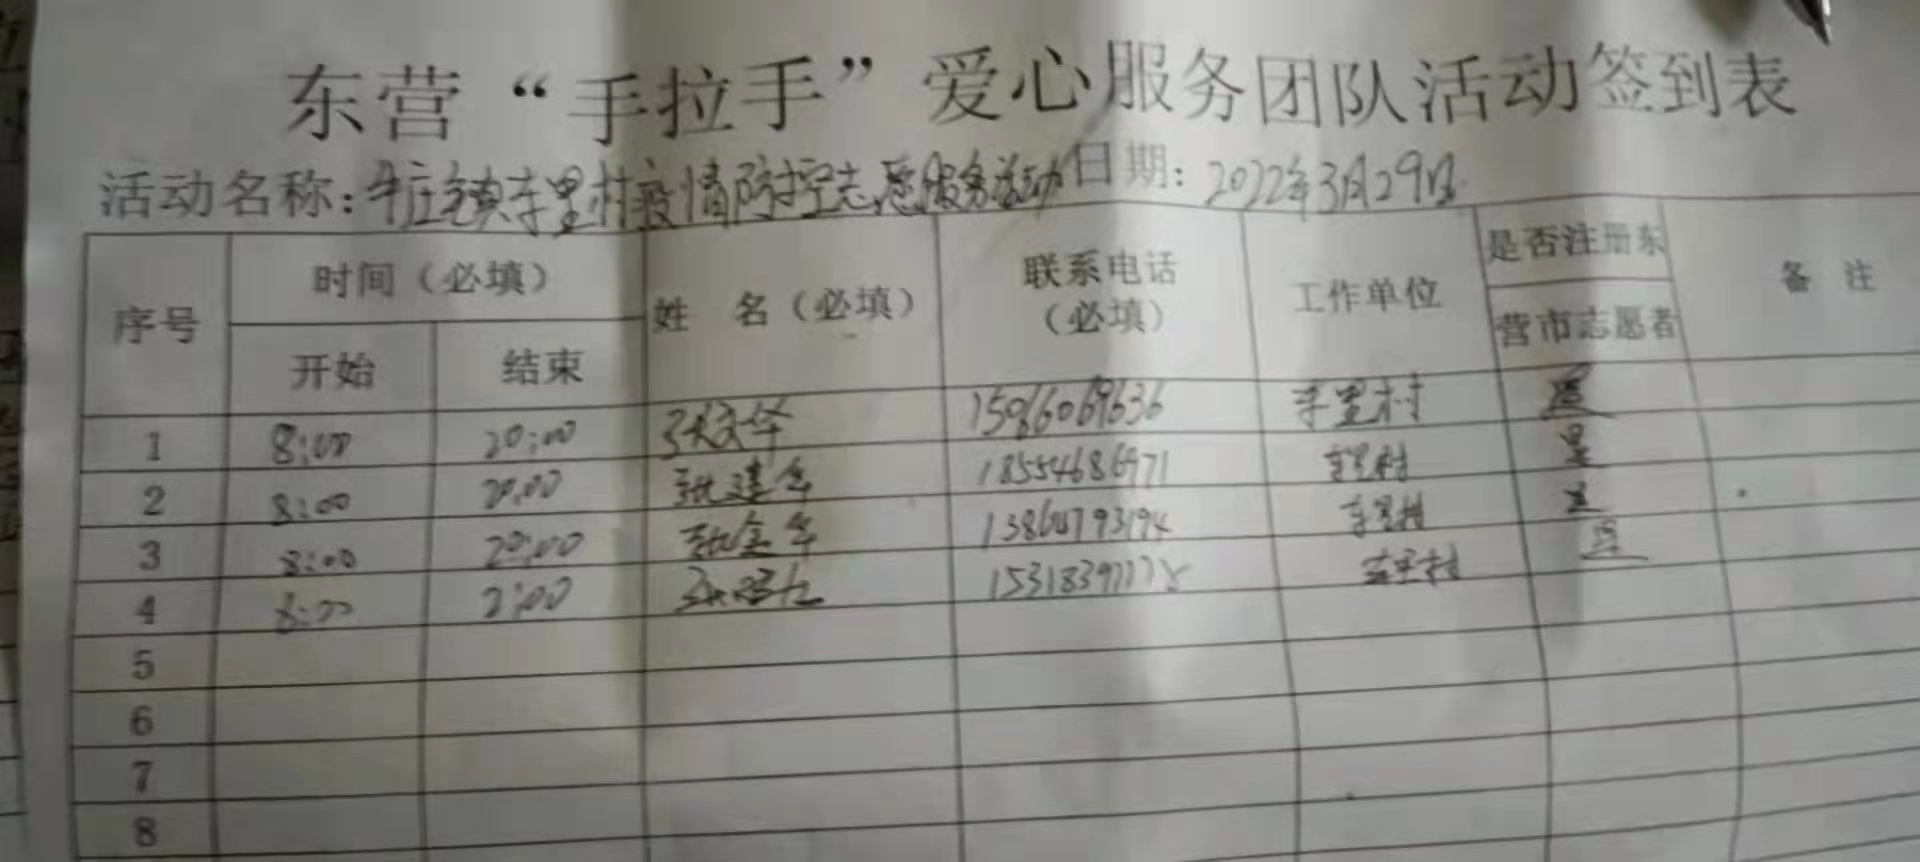 东营“手拉手”爱心服务团队活动签到表
活动名称:牛庄镇东里村疫情防控志愿服务活动 日期: 2022年3月29日
序号 时间（必填） 姓 名（必填） 联系电话（必填） 工作单位 是否注册东营市志愿者 备 注
开始 结束
1 8:00 20:00 张文华 15066069636 李里村 是
2 8:00 20:00 张建华 18554686971 村 是
3 8:00 20:00 张金华 村 是
4 8:00 村 是
5
6
7
8